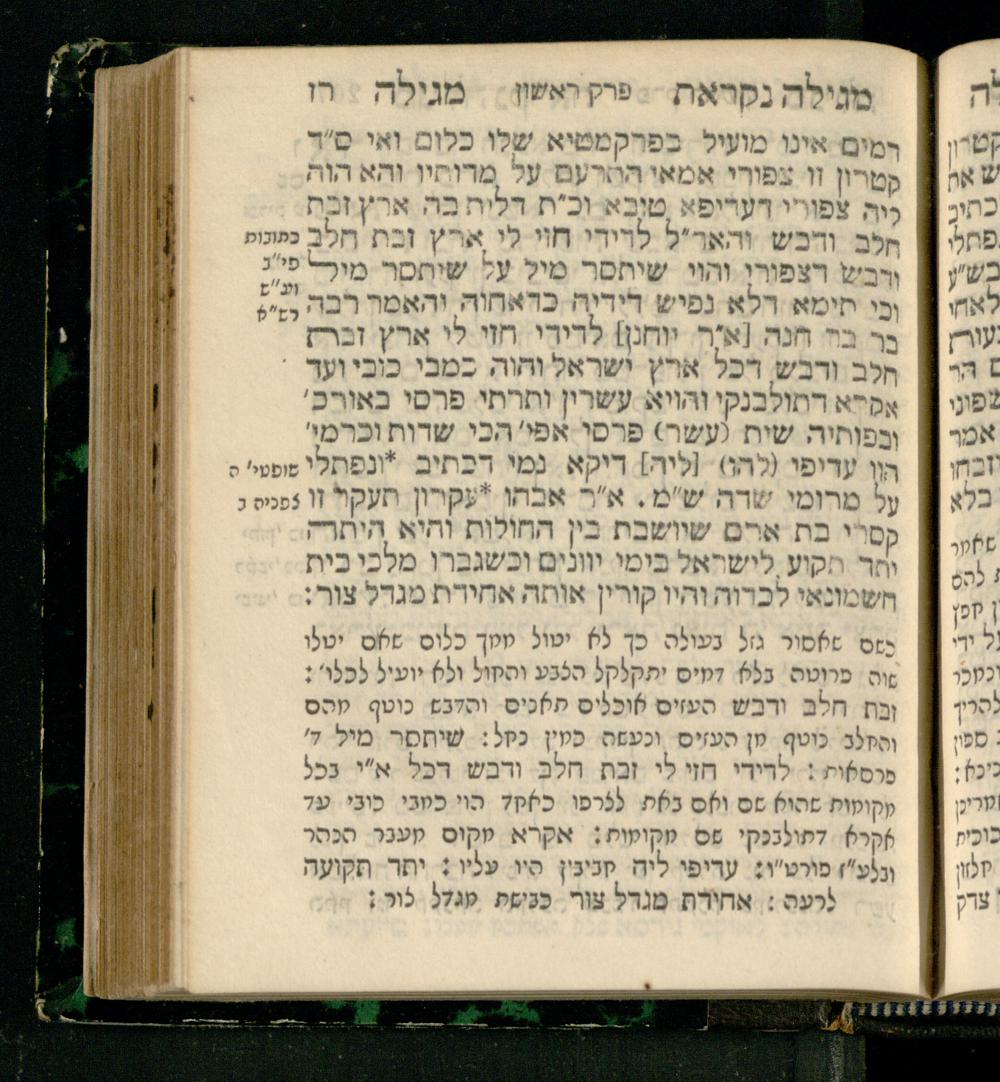 מגילה נקראת פרק ראשון מגילה רז
דמים אינו מועיל בפרקמטיא שלו כלום ואי ס״ד
קטרון זו צפורי אמאי התרעם על מדותיו והא הוה
ליה צפורי דעדיפא טיבא וכ״ת דלית בה ארץ זבת
חלב ודבש והאר״ל לדידי חזי לי ארץ זבת חלב
ודבש דצפורי והוי שיתסר מיל על שיתסר מיל
וכי תימא דלא נפיש דידיה כדאחוה והאמר רבה
בר בר חנה [א״ר יוחנן] לדידי חזי לי ארץ זבת
חלב ודבש דכל ארץ ישראל והוה כמבי כובי ועד
אקרא דתולבנקי והויא עשרין ותרתי פרסי באורכ׳
ובפותיה שית (עשר) פרסי אפי׳ הכי שדות וכרמי׳
הוו עדיפי (להו) [ליה] דיקא נמי דכתיב *ונפתלי
על מרומי שדה ש״מ. א״ר אבהו *עקרון תעקר זו
קסרי בת ארם שיושבת בין החולות והיא היתה
יתד תקוע לישראל בימי יוונים וכשגברו מלכי בית
חשמונאי לכדוה והיו קורין אותה אחידת מגדל צור:
כשם שאסור גזל בעולה כך לא יטול ממך כלום שאם יטלו
שוה פרוטה בלא דמים יתקלקל הצבע והחול ולא יועיל לכלו׳:
זבת חלב ודבש העזים אוכלים תאנים והדבש נוטף מהם
והחלב נוטף מן העזים ונעשה כמין נחל: שיתסר מיל ד׳
פרסאות: לדידי חזי לי זבת חלב ודבש דכל א״י בכל
מקומות שהוא שם ואם באת לצרפו כאחד הוי כמבי כובי עד
אקרא דתולבנקי שם מקומות: אקרא מקום מעבר הנהר
ובלע״ז פורט״ו: עדיפי ליה חביבין היו עליו: יתד תקועה
לרעה: אחידת מגדל צור כבישת מגדל צור:
כתובות
פי״ב
וע״ש
רש״א
שופטי׳ ה
צפניה ב